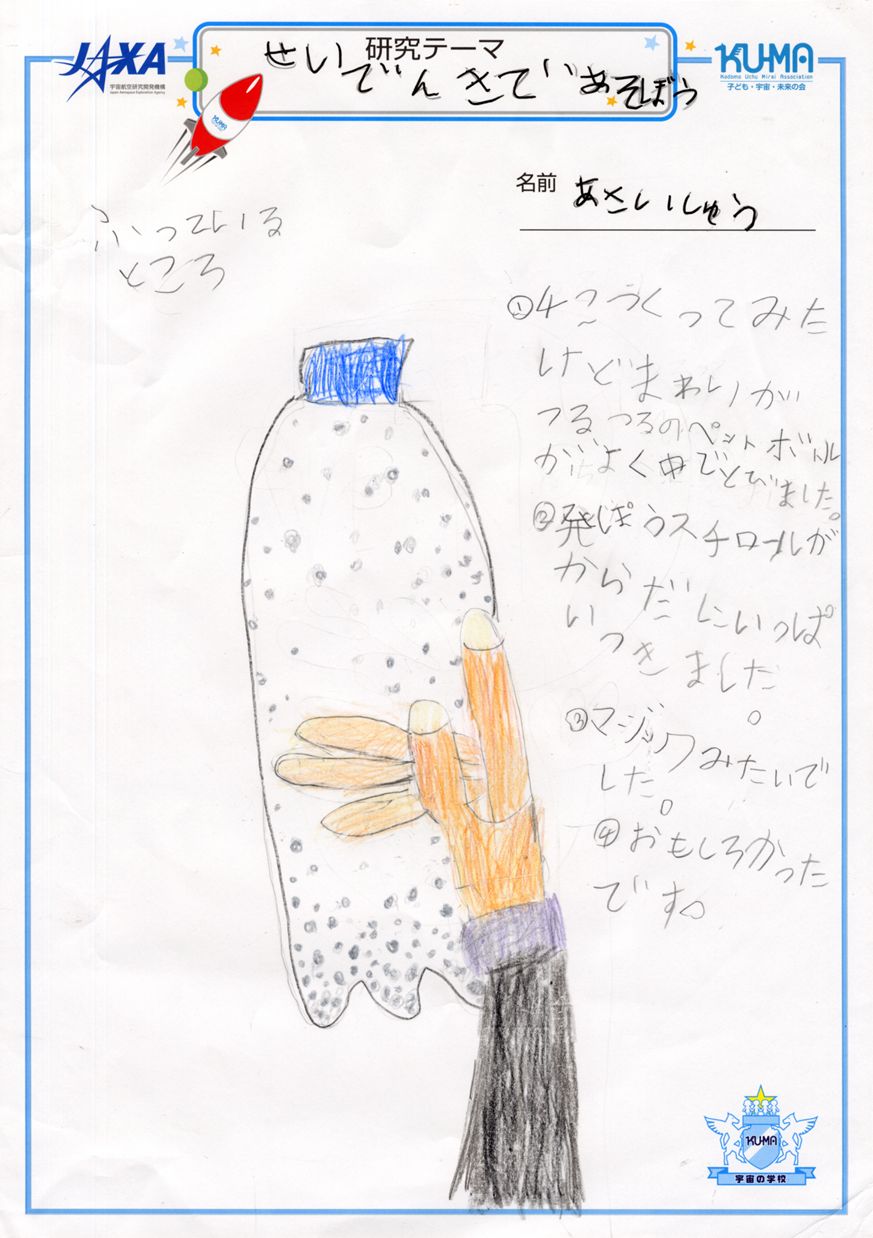 JAXA
宇宙航空研究開発機構
Japan Aerospace Exploration Agency
研究テーマ
せいでんきであそぼう
KU-MA
Kodomo Uchu Mirai Association
子ども・宇宙・未来の会
KU-MA
名前 あさいしゅう
ふっている
ところ
①4こつくってみた
けどまわりが
つるつるのペットボトル
がよく中でとびました。
②発ぽうスチロールが
からだにいっぱ
いつきました。
③マジックみたいで
した。
④おもしろかった
です。
KU-MA
宇宙の学校